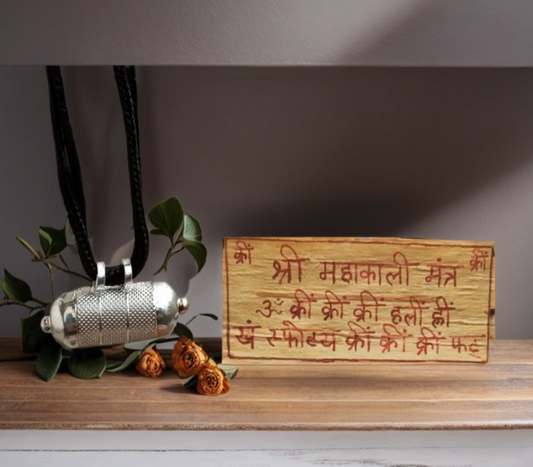 क्रीं श्री महाकाली मंत्र क्रीं
ॐ क्रीं क्रीं क्रीं हलीं ह्रीं
खं स्फोटय क्रीं क्रीं क्रीं फट